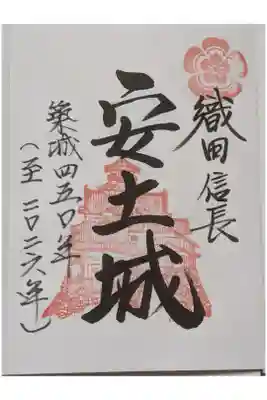 織田信長
安土城
築城四五〇年
(至 二〇二六年)